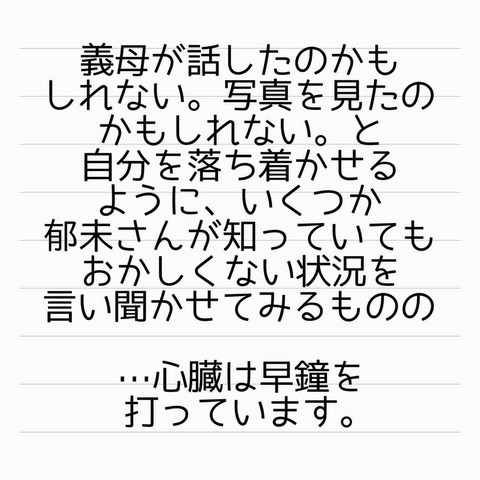 義母が話したのかも
しれない。写真を見たの
かもしれない。と
自分を落ち着かせる
ように、いくつか
郁未さんが知っていても
おかしくない状況を
言い聞かせてみるものの
…心臓は早鐘を
打っています。